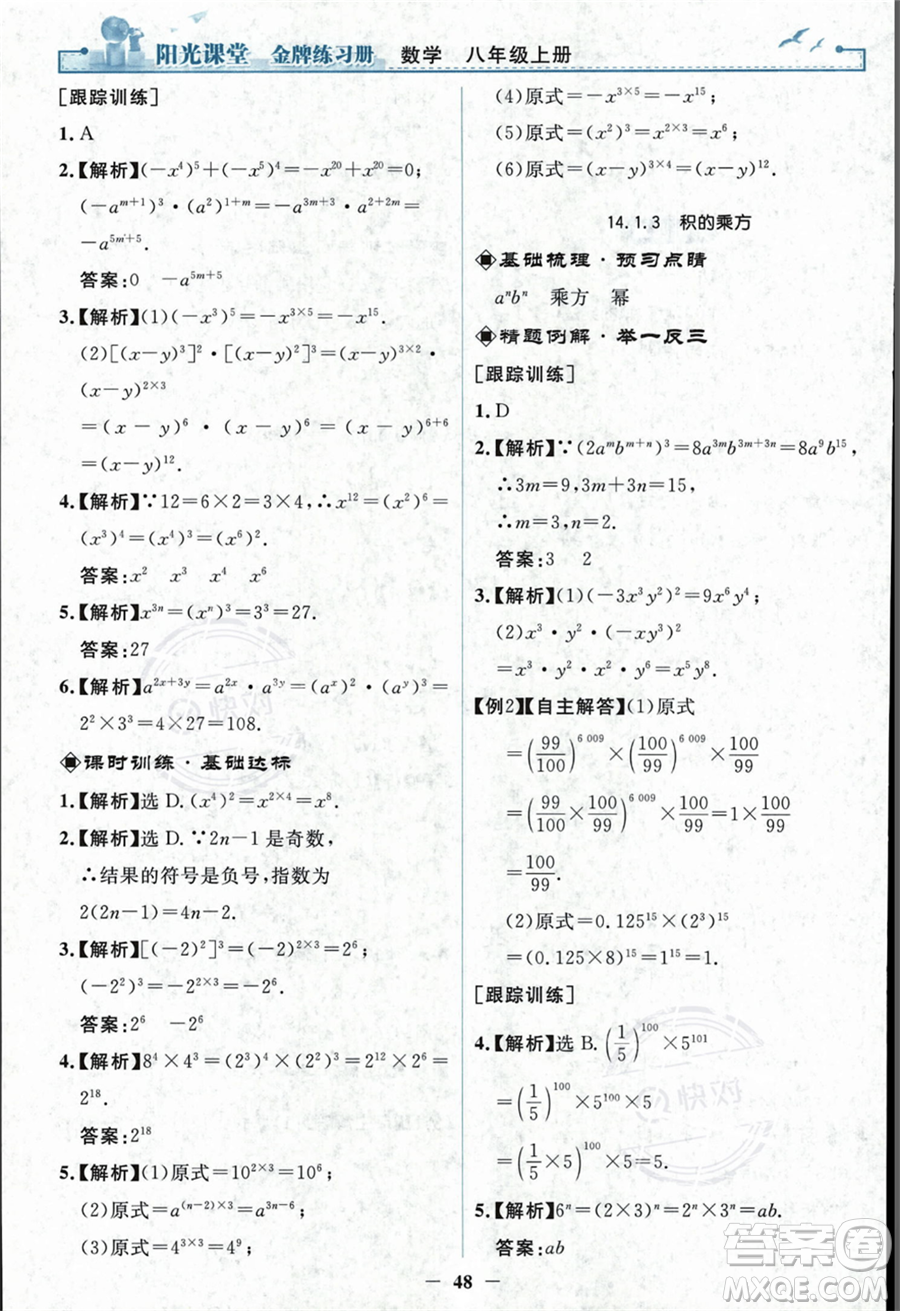 阳光课堂 金牌练习册 数学 八年级上册
[跟踪训练]
1. A
2.【解析】(-x⁴)⁵+(-x⁵)⁴=-x²⁰+x²⁰=0;
(-a^{m+1})³·(a²)^{1+m}=-a^{3m+3}·a^{2+2m}=
-a^{5m+5}.
答案:0 -a^{5m+5}
3.【解析】(1)(-x³)⁵=-x^{3×5}=-x¹⁵.
(2)[(x-y)³]²·[(x-y)²]³=(x-y)^{3×2}·
(x-y)^{2×3}
=(x-y)⁶·(x-y)⁶=(x-y)^{6+6}
=(x-y)¹².
4.【解析】∵12=6×2=3×4,∴x¹²=(x²)⁶=
(x³)⁴=(x⁴)³=(x⁶)².
答案:x² x³ x⁴ x⁶
5.【解析】x^{3n}=(xⁿ)³=3³=27.
答案:27
6.【解析】a^{2x+3y}=a^{2x}·a^{3y}=(aˣ)²·(aʸ)³=
2²×3³=4×27=108.
课时训练·基础达标
1.【解析】选 D.(x⁴)²=x^{2×4}=x⁸.
2.【解析】选 D.∵2n-1是奇数,
∴结果的符号是负号,指数为
2(2n-1)=4n-2.
3.【解析】[(-2)²]³=(-2)^{2×3}=2⁶;
(-2²)³=-2^{2×3}=-2⁶.
答案:2⁶ -2⁶
4.【解析】8⁴×4³=(2³)⁴×(2²)³=2¹²×2⁶=
2¹⁸.
答案:2¹⁸
5.【解析】(1)原式=10^{2×3}=10⁶;
(2)原式=a^{(n-2)×3}=a^{3n-6};
(3)原式=4^{3×3}=4⁹;
(4)原式=-x^{3×5}=-x¹⁵;
(5)原式=(x²)³=x^{2×3}=x⁶;
(6)原式=(x-y)^{3×4}=(x-y)¹².
14.1.3 积的乘方
基础梳理·预习点睛
aⁿbⁿ 乘方 幂
精题例解·举一反三
[跟踪训练]
1. D
2.【解析】∵(2aᵐb^{m+n})³=8a^{3m}b^{3m+3n}=8a⁹b¹⁵,
∴3m=9,3m+3n=15,
∴m=3,n=2.
答案:3 2
3.【解析】(1)(-3x³y²)²=9x⁶y⁴;
(2)x³·y²·(-xy³)²
=x³·y²·x²·y⁶=x⁵y⁸.
【例2】【自主解答】(1)原式
=(99/100)^{6 009}×(100/99)^{6 009}×(100/99)
=(99/100×100/99)^{6 009}×100/99=1×100/99=
100/99.
(2)原式=0.125¹⁵×(2³)¹⁵
=(0.125×8)¹⁵=1¹⁵=1.
[跟踪训练]
4.【解析】选 B.(1/5)¹⁰⁰×5¹⁰¹
=(1/5)¹⁰⁰×5¹⁰⁰×5
=(1/5×5)¹⁰⁰×5=5.
5.【解析】6ⁿ=(2×3)ⁿ=2ⁿ×3ⁿ=ab.
答案:ab
— 48 —
快对
快对
答案圈
MXQE.COM